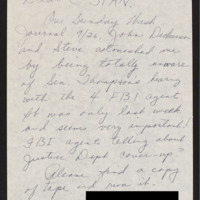 STAN,
Sunday Wash.
Journal 9/26, John Dickerson
and Steve astonished me
by being totally unaware
of Sen Thompsons hearing
with the 4 FBI agents
It was only last week
and seems very important!
FBI agents telling about
Justice Dept cover-up"
Please find a copy
of tape and run it.